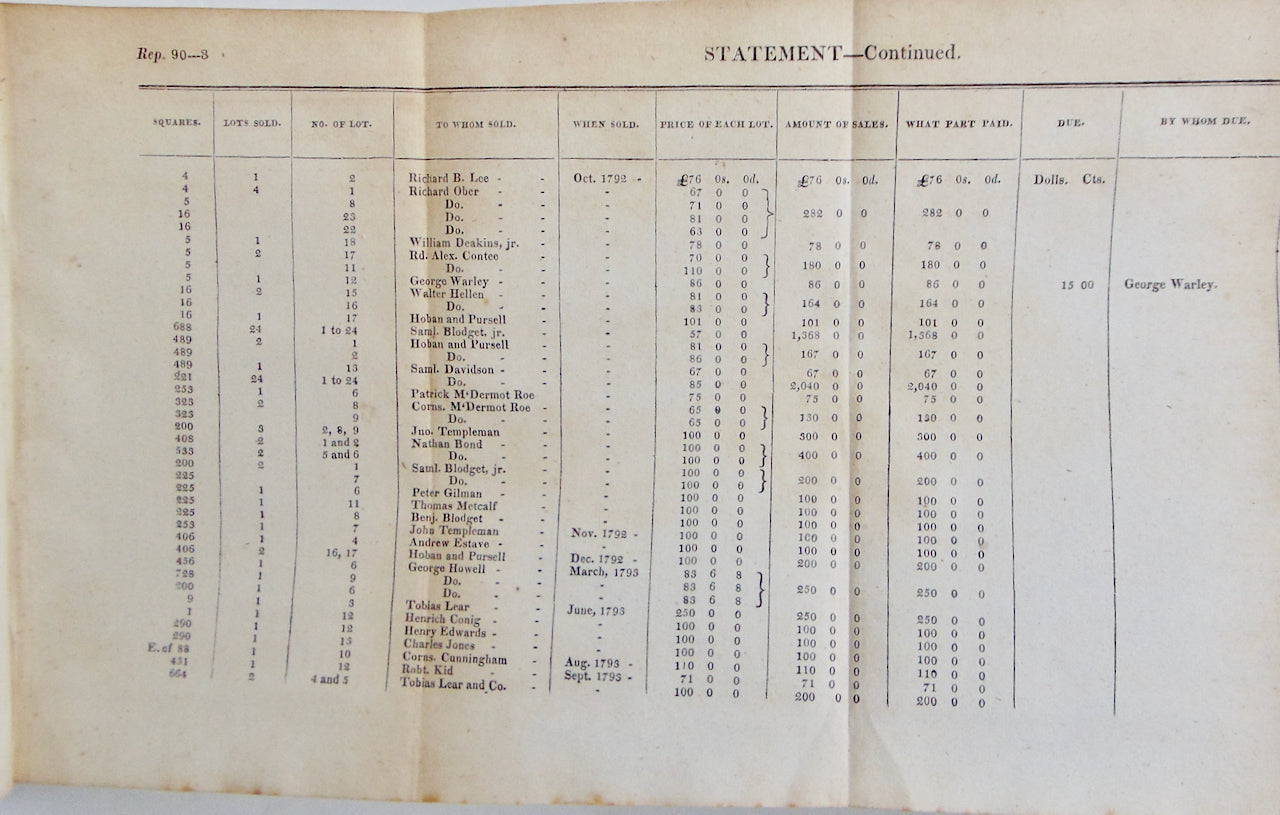 Rep. 90—3
STATEMENT—Continued.
SQUARES. LOTS SOLD. NO. OF LOT. TO WHOM SOLD. WHEN SOLD. PRICE OF EACH LOT. AMOUNT OF SALES. WHAT PART PAID. DUE. BY WHOM DUE.
4 1 2 Richard B. Lee - - Oct. 1792 - £76 0s. 0d. £76 0s. 0d. £76 0s. 0d. Dolls. Cts.
4 4 1 Richard Ober - - - 67 0 0
5 8 Do. - - - 71 0 0
16 23 Do. - - - 81 0 0 282 0 0 282 0 0
16 22 Do. - - - 63 0 0
5 1 18 William Deakins, jr. - - 78 0 0 78 0 0 78 0 0
5 2 17 Rd. Alex. Contee - - 70 0 0
5 11 Do. - - - 110 0 0 180 0 0 180 0 0
5 1 12 George Warley - - - 86 0 0 86 0 0 86 0 0 15 00 George Warley.
16 2 15 Walter Hellen - - - 81 0 0
16 16 Do. - - - 83 0 0 164 0 0 164 0 0
16 1 17 Hoban and Pursell - - 101 0 0 101 0 0 101 0 0
688 24 1 to 24 Saml. Blodget, jr. - - 57 0 0 1,368 0 0 1,368 0 0
489 2 1 Hoban and Pursell - - 81 0 0
489 2 Do. - - - 86 0 0 167 0 0 167 0 0
489 1 13 Saml. Davidson - - - 67 0 0 67 0 0 67 0 0
221 24 1 to 24 Do. - - - 85 0 0 2,040 0 0 2,040 0 0
253 1 6 Patrick M'Dermot Roe - 75 0 0 75 0 0 75 0 0
323 2 8 Corns. M'Dermot Roe - - 65 0 0
323 9 Do. - - - 65 0 0 130 0 0 130 0 0
200 3 2, 8, 9 Jno. Templeman - - 100 0 0 300 0 0 300 0 0
408 2 1 and 2 Nathan Bond - - - 100 0 0
533 2 5 and 6 Do. - - - 100 0 0 400 0 0 400 0 0
200 2 1 Saml. Blodget, jr. - - 100 0 0
225 7 Do. - - - 100 0 0 200 0 0 200 0 0
225 1 6 Peter Gilman - - - 100 0 0 100 0 0 100 0 0
225 1 11 Thomas Metcalf - - 100 0 0 100 0 0 100 0 0
225 1 8 Benj. Blodget - - - 100 0 0 100 0 0 100 0 0
253 1 7 John Templeman - Nov. 1792 - 100 0 0 100 0 0 100 0 0
406 1 4 Andrew Estave - - - 100 0 0 100 0 0 100 0 0
406 2 16, 17 Hoban and Pursell - Dec. 1792 - 100 0 0 200 0 0 200 0 0
456 1 6 George Howell - - March, 1793 83 6 8
728 1 9 Do. - - - 83 6 8 250 0 0 250 0 0
200 1 6 Do. - - - 83 6 8
9 1 3 Tobias Lear - - June, 1793 250 0 0 250 0 0 250 0 0
1 1 12 Henrich Conig - - - 100 0 0 100 0 0 100 0 0
290 1 12 Henry Edwards - - - 100 0 0 100 0 0 100 0 0
290 1 13 Charles Jones - - - 100 0 0 100 0 0 100 0 0
E. of 88 1 10 Corns. Cunningham - Aug. 1793 - 110 0 0 110 0 0 110 0 0
431 1 12 Robt. Kid - - Sept. 1793 - 71 0 0 71 0 0 71 0 0
664 2 4 and 5 Tobias Lear and Co. - - 100 0 0 200 0 0 200 0 0